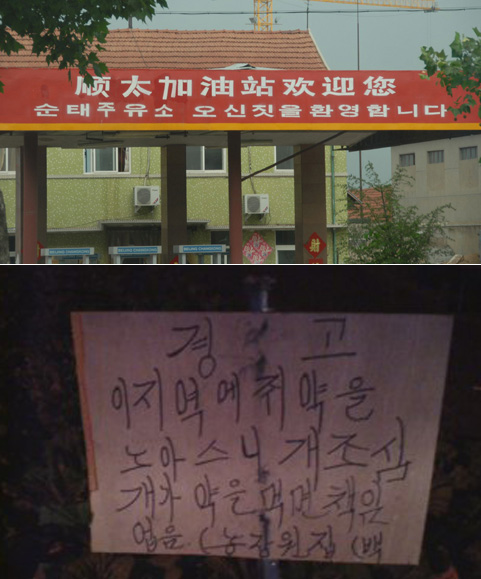 顺太加油站欢迎您
순태주유소 오신짓을환영합니다
财
경 고
이지역에 쥐약을
노아스니 개조심
개가 약을 먹면 책임
없음. (농장원집 (백